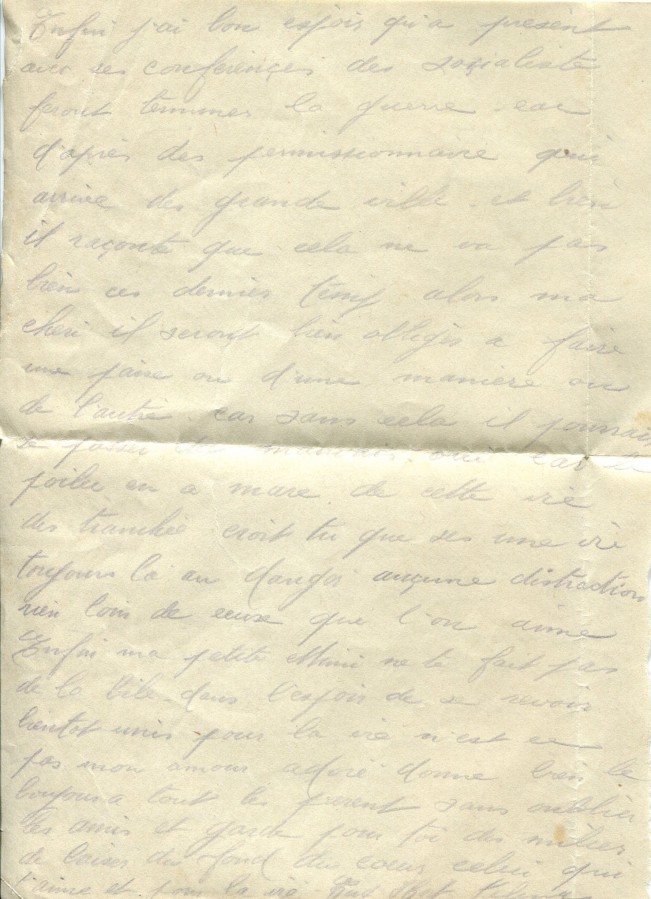 Enfin j'ai bon espoir qu'a présent
avec ses conférences des socialiste
feront terminer la guerre car
d'après des permissionnaire qui
arrive des grande ville et bien
il raconte que cela ne va pas
bien ces dernier temp alors ma
cheri il seront bien obligés a faire
une paix ou d'une maniere ou
de l'autre car sans cela il pourrait
se passer des mauvais car le
poilu en a mare de cette vie
des tranchée croit tu que ses une vie
toujours la au danger aucune distraction
rien loin de ceuse que l'on aime
Enfin ma petite Mimi ne te fait pas
de la bile dans l'espoir de se revoir
bientot unis pour la vie n'est ce
pas mon amour adoré donne bien le
bonjour a tout les parent sans oublier
les amis et garde pour toi des milier
de baiser du fond du cœur celui qui
t'aime et pour la vie